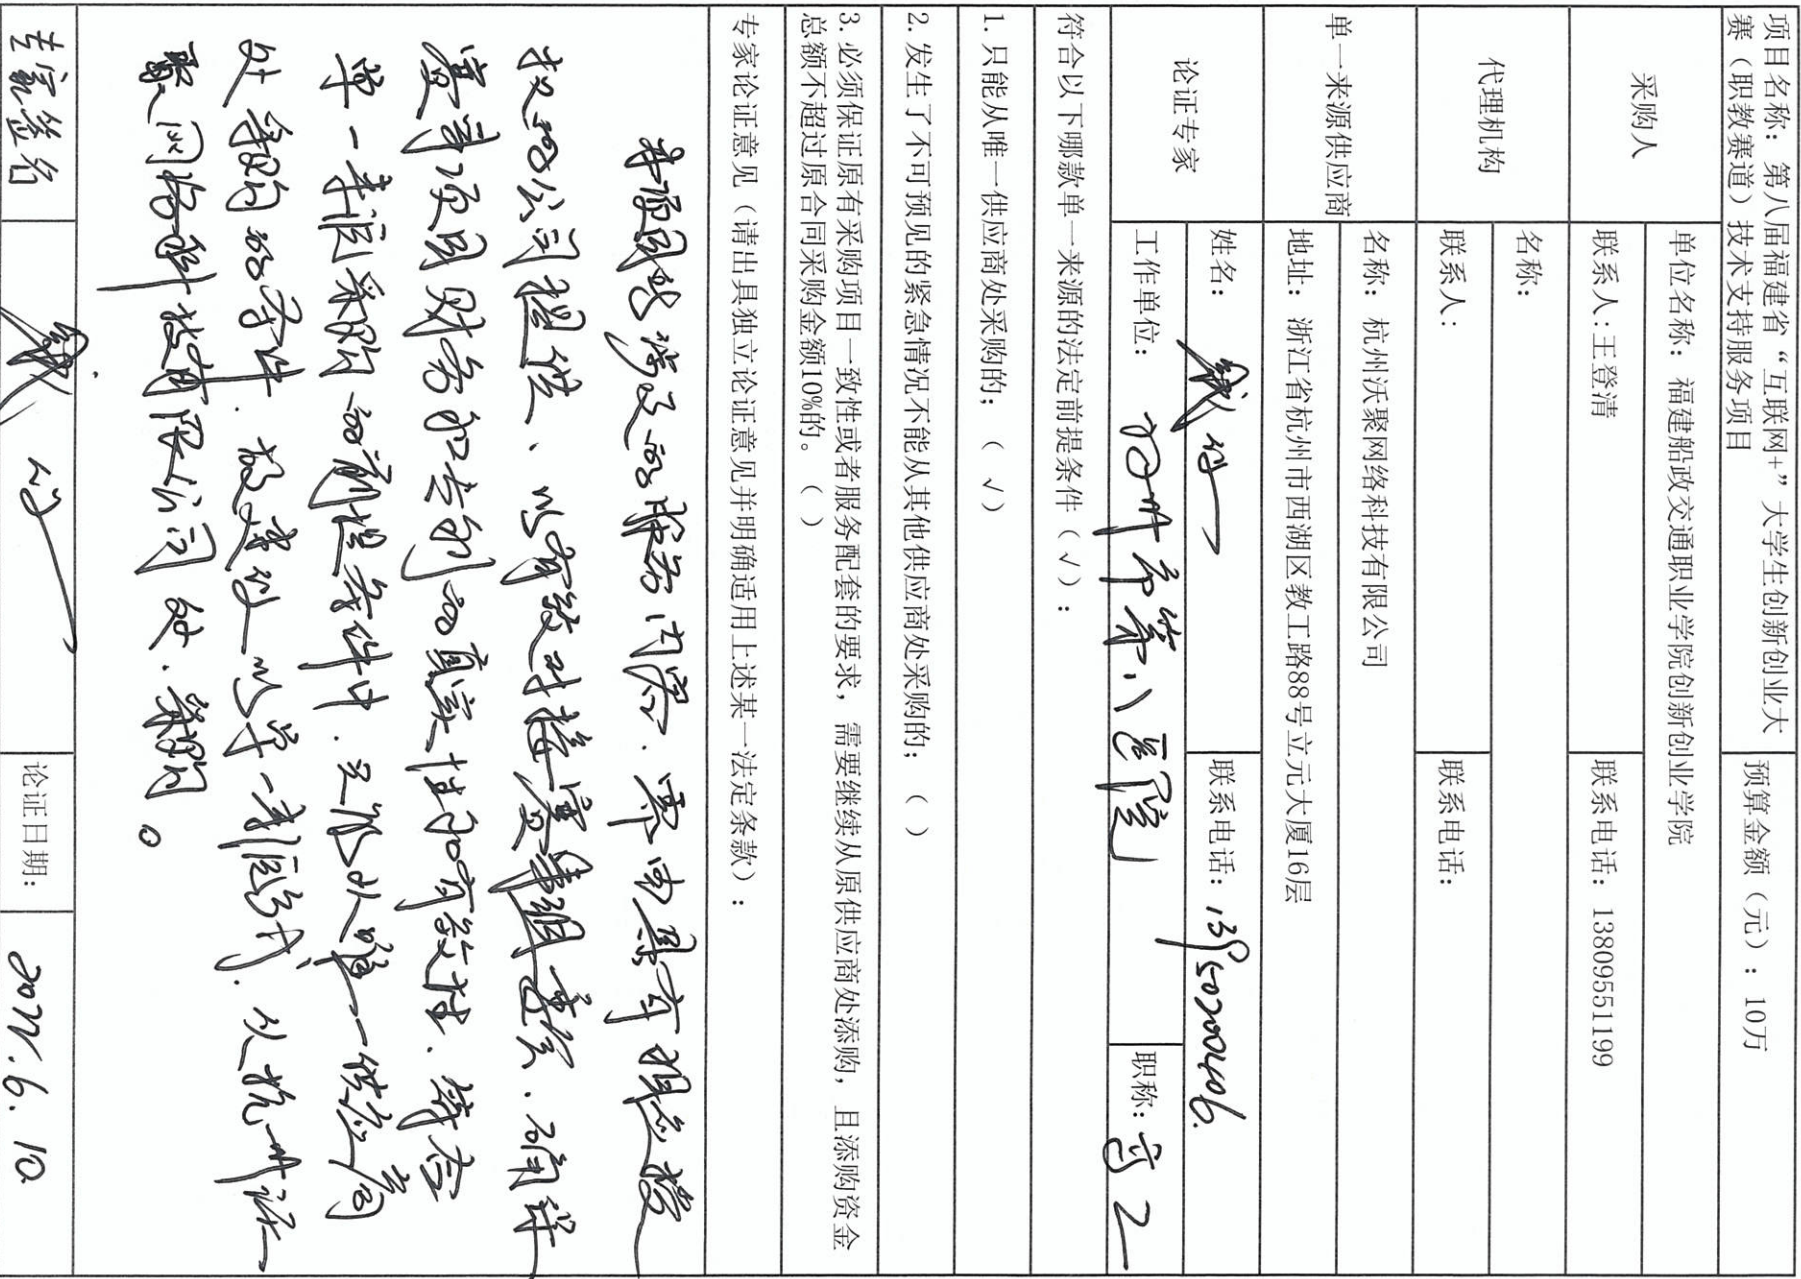 项目名称：第八届福建省“互联网+”大学生创新创业大
赛（职教赛道）技术支持服务项目
预算金额（元）：10万
采购人
单位名称：福建船政交通职业学院创新创业学院
联系人：王登清
联系电话：13809551199
代理机构
名称：
联系人：
联系电话：
单一来源供应商
名称：杭州沃聚网络科技有限公司
地址：浙江省杭州市西湖区教工路88号立元大厦16层
论证专家
姓名：
联系电话：
工作单位：
职称：高工
符合以下哪款单一来源的法定前提条件（√）：
1.只能从唯一供应商处采购的；（ √ ）
2.发生了不可预见的紧急情况不能从其他供应商处采购的；（ ）
3.必须保证原有采购项目一致性或者服务配套的要求，需要继续从原供应商处添购，且添购资金
总额不超过原合同采购金额10%的。（ ）
专家论证意见（请出具独立论证意见并明确适用上述某一法定条款）：
本项目所涉及的服务内容，需由具有相应授
权的公司提供，以有效对接大赛组委会，确保
赛事项目服务的真实性和有效性，符合
单一来源采购的前提条件中，只能从唯一供应商
处采购的条件，故建议以单一来源方式，从杭州沃
聚网络科技有限公司处采购。
专家签名
论证日期：
2022.6.10